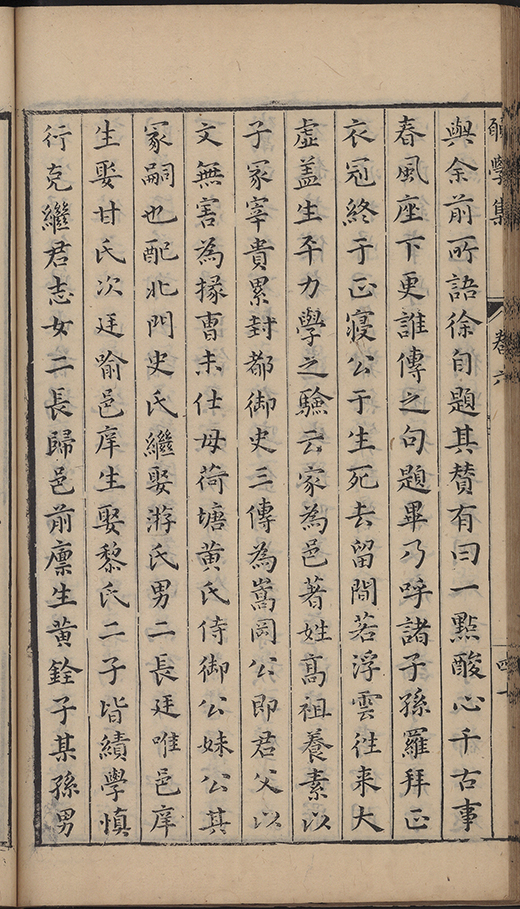 願學集 卷六 四十
與余前所語徐自題其贊有曰一點酸心千古事
春風座下更誰傳之句題畢乃呼諸子孫羅拜正
衣冠終于正寢公于生死去留間若浮雲徃来大
虛盖生平力學之驗云家為邑著姓高祖養素以
子冢宰貴累封都御史三傳為嵩岡公即君父以
文無害為掾曹未仕母荷塘黄氏侍御公妹公其
冢嗣也配北門史氏繼娶游氏男二長廷唯邑庠
生娶甘氏次廷喻邑庠生娶黎氏二子皆績學慎
行克繼君志女二長歸邑前廪生黄銓子某孫男